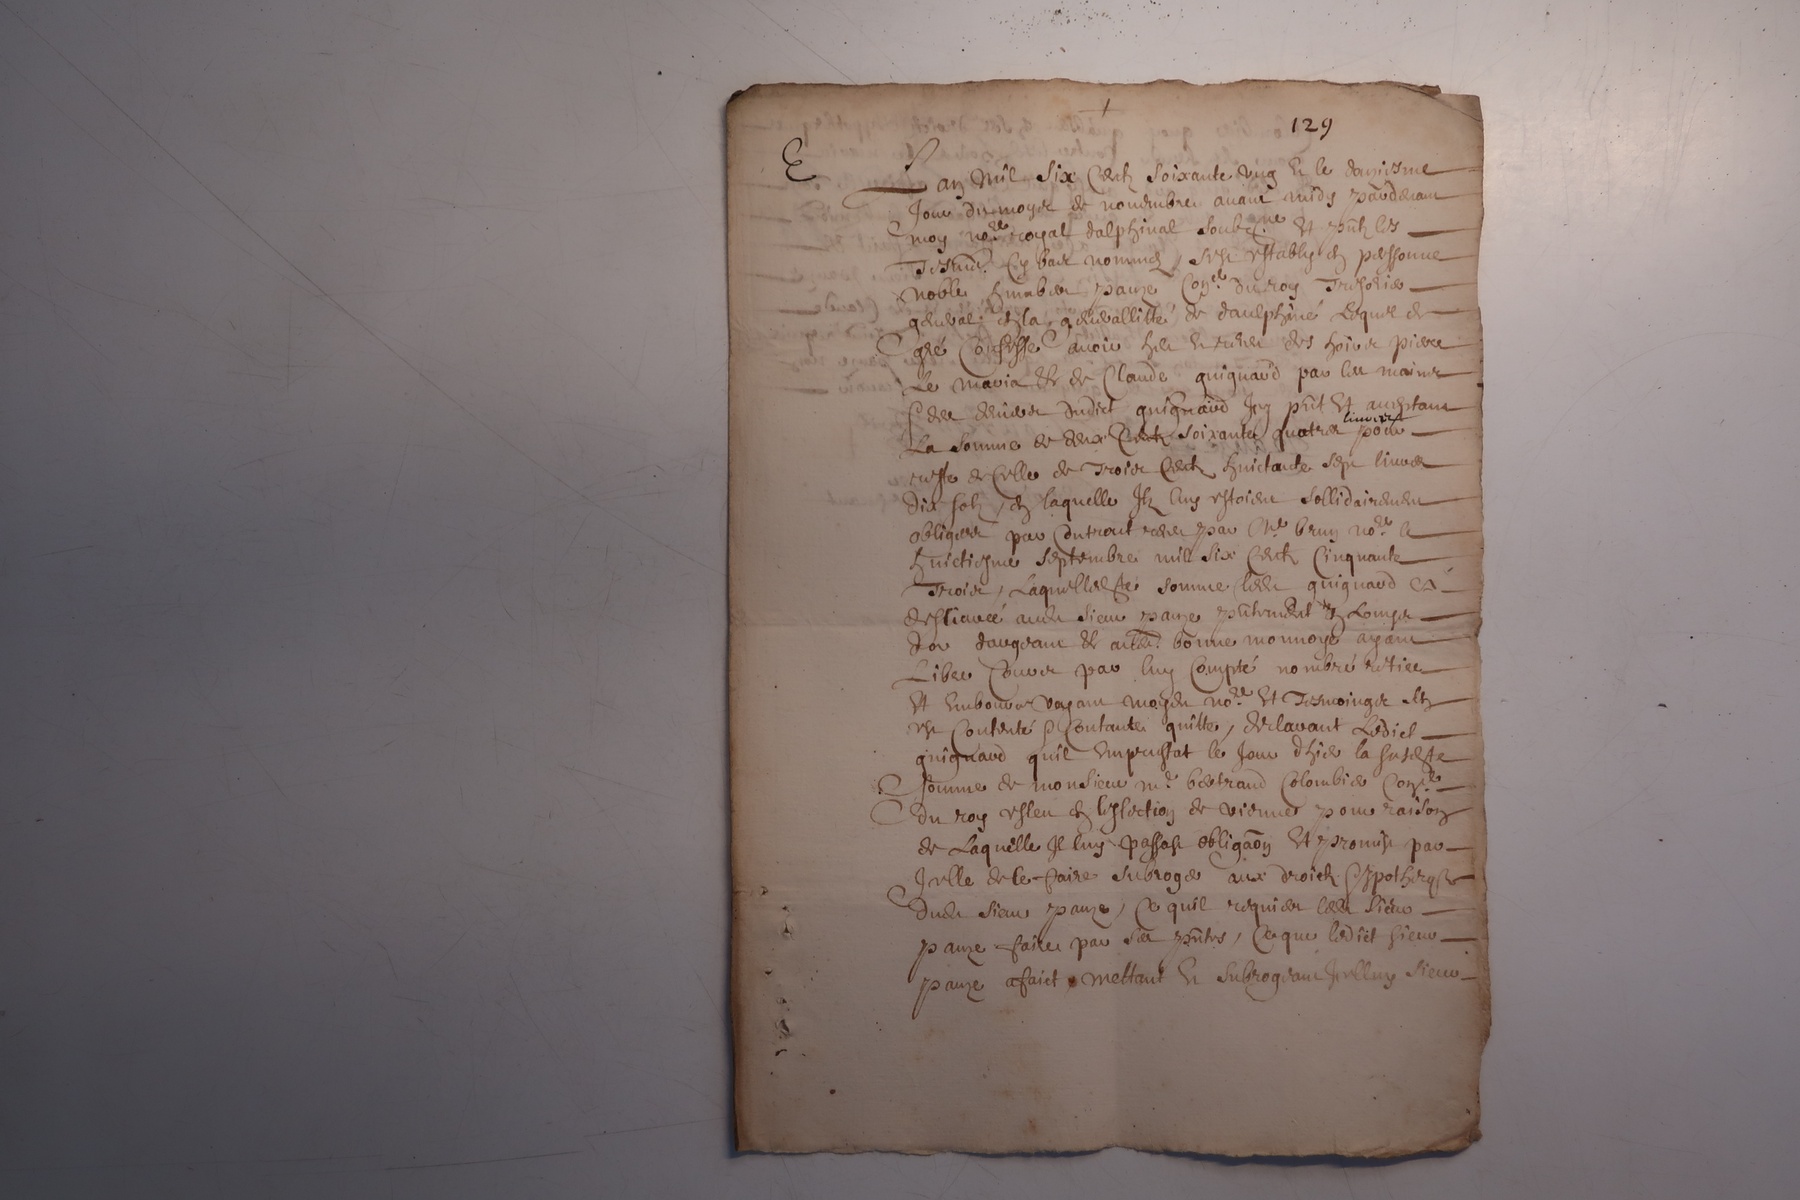 129
E
L an mil six centz soixante ung et le douziesme
Jour du moys de novembre avant midy pardevan
moy no.re royal dalphinal soubz.ne et pntz les
Tesmz cy bas nommez, s'est estably en personne
noble humber panze con.er du roy Tresorier
general en la generallitté de daulphiné Lequel de
gré Confesse avoir heu et receu des hoirs piere
Le maria et de Claude guignard par les mains
des deniers dudict guignard Icy pnt et aceptant
livres
La somme de deux Centz soixante quatre pour
reste de Celle de Trois Centz huictante sept livres
dix solz, en laquelle Ilz luy estoient sollidairement
obliges par Contract receu par M.e brun no.re le
huictiesme septembre mil six Centz Cinquante
Trois, Laquelle somme ledt guignard a
deslivré audt sieur panze pntement en Louys
dor dargeant et aultre bonne monnoye ayant
Libre Cours par luy Compté nombré retiré
Et Emboursé voyant moydt no.re Et Tesmoingz
est Contenté Contante quitte, declarant Ledict
guignard quil Emprustat le Jour dhier la susdte
somme de monsieur m.e bertrand Colombier con.er
du roy esleu en leslection de vienne pour raison
de Laquelle Il luy passast obligaon Et promist par
Icelle de le faire subroger aux droictz hypotheques
dudt sieur panze, Ce quil requier ledt sieur
panze faire par ses pntes, Ce que ledict sieur
panze a faict mettant et subrogeant Icelluy sieur